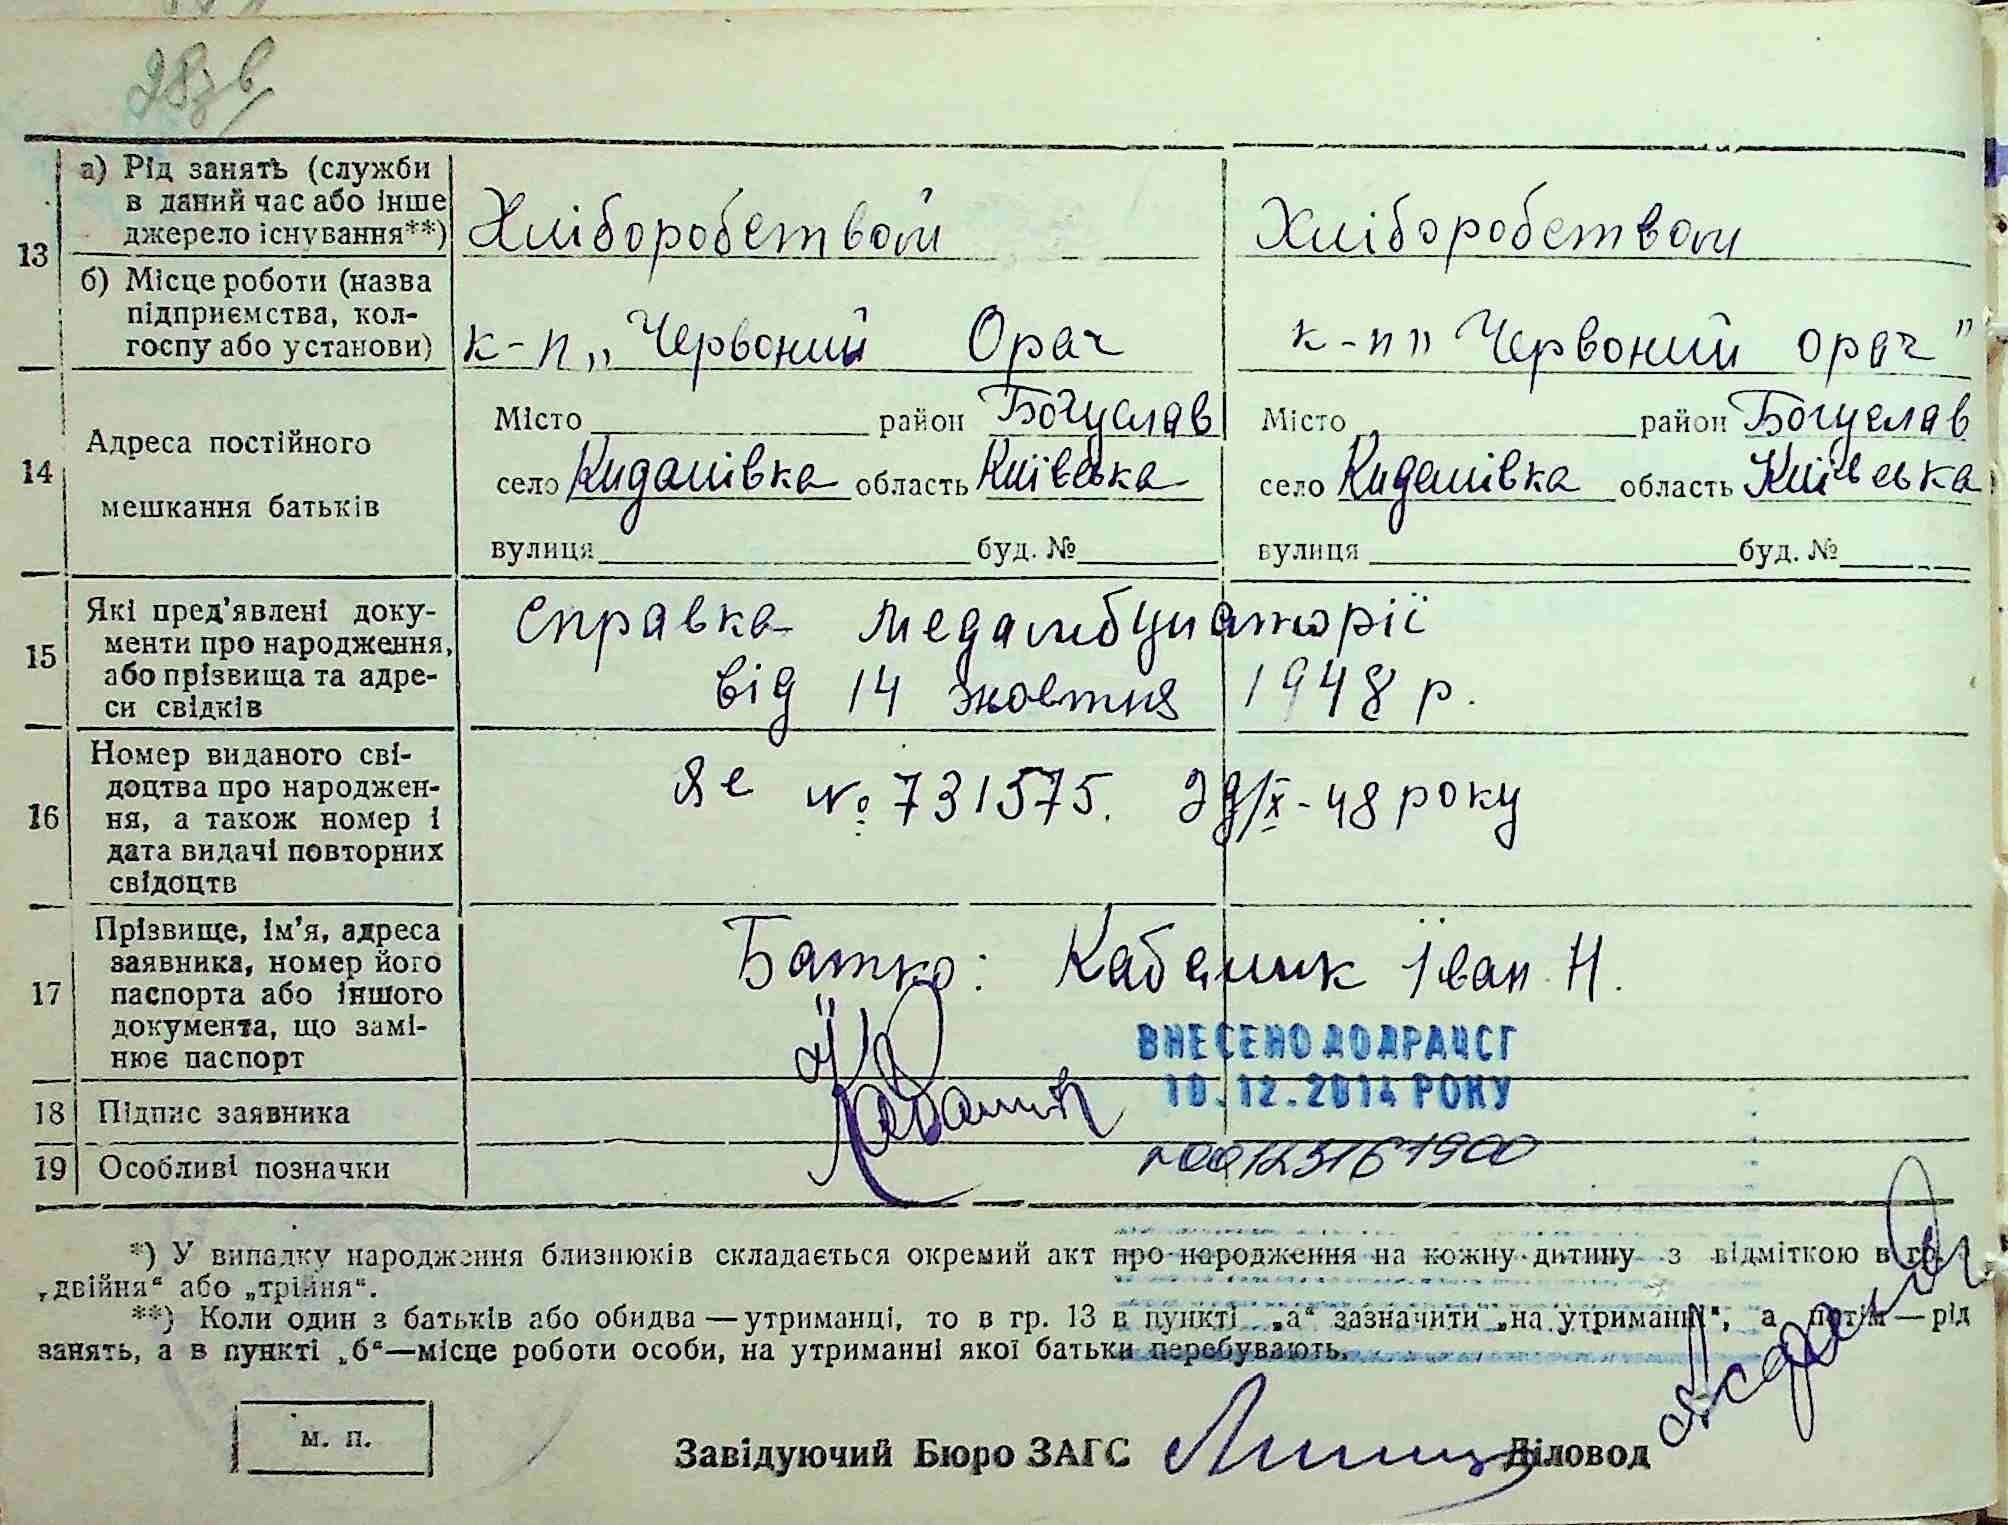 28зв
13 а) Рід занять (служби в даний час або інше джерело існування**)
Хліборобством
Хліборобством
б) Місце роботи (назва підприємства, колгоспу або установи)
к-п „Червоний Орач
к-п „Червоний орач"
14 Адреса постійного мешкання батьків
Місто район Богуслав
село Кидашівка область Київська
вулиця буд. №
Місто район Богуслав
село Кидашівка область Київська
вулиця буд. №
15 Які пред'явлені документи про народження, або прізвища та адреси свідків
Справка медамбулаторії
від 14 жовтня 1948 р.
16 Номер виданого свідоцтва про народження, а також номер і дата видачі повторних свідоцтв
№ 731575. -48 року
17 Прізвище, ім'я, адреса заявника, номер його паспорта або іншого документа, що замінює паспорт
Батко: Кабаник Іван Н.
ВНЕСЕНО ДО ДРАЦСГ
10.12.2014 РОКУ
18 Підпис заявника
Кабаник
19 Особливі позначки
00123161900
*) У випадку народження близнюків складається окремий акт про народження на кожну дитину з відміткою в гр.
„двійня“ або „трійня“.
**) Коли один з батьків або обидва—утриманці, то в гр. 13 в пункті „а“ зазначити „на утриманні“, а потім—рід
занять, а в пункті „б“—місце роботи особи, на утриманні якої батьки перебувають.
м. п.
Завідуючий Бюро ЗАГС Діловод